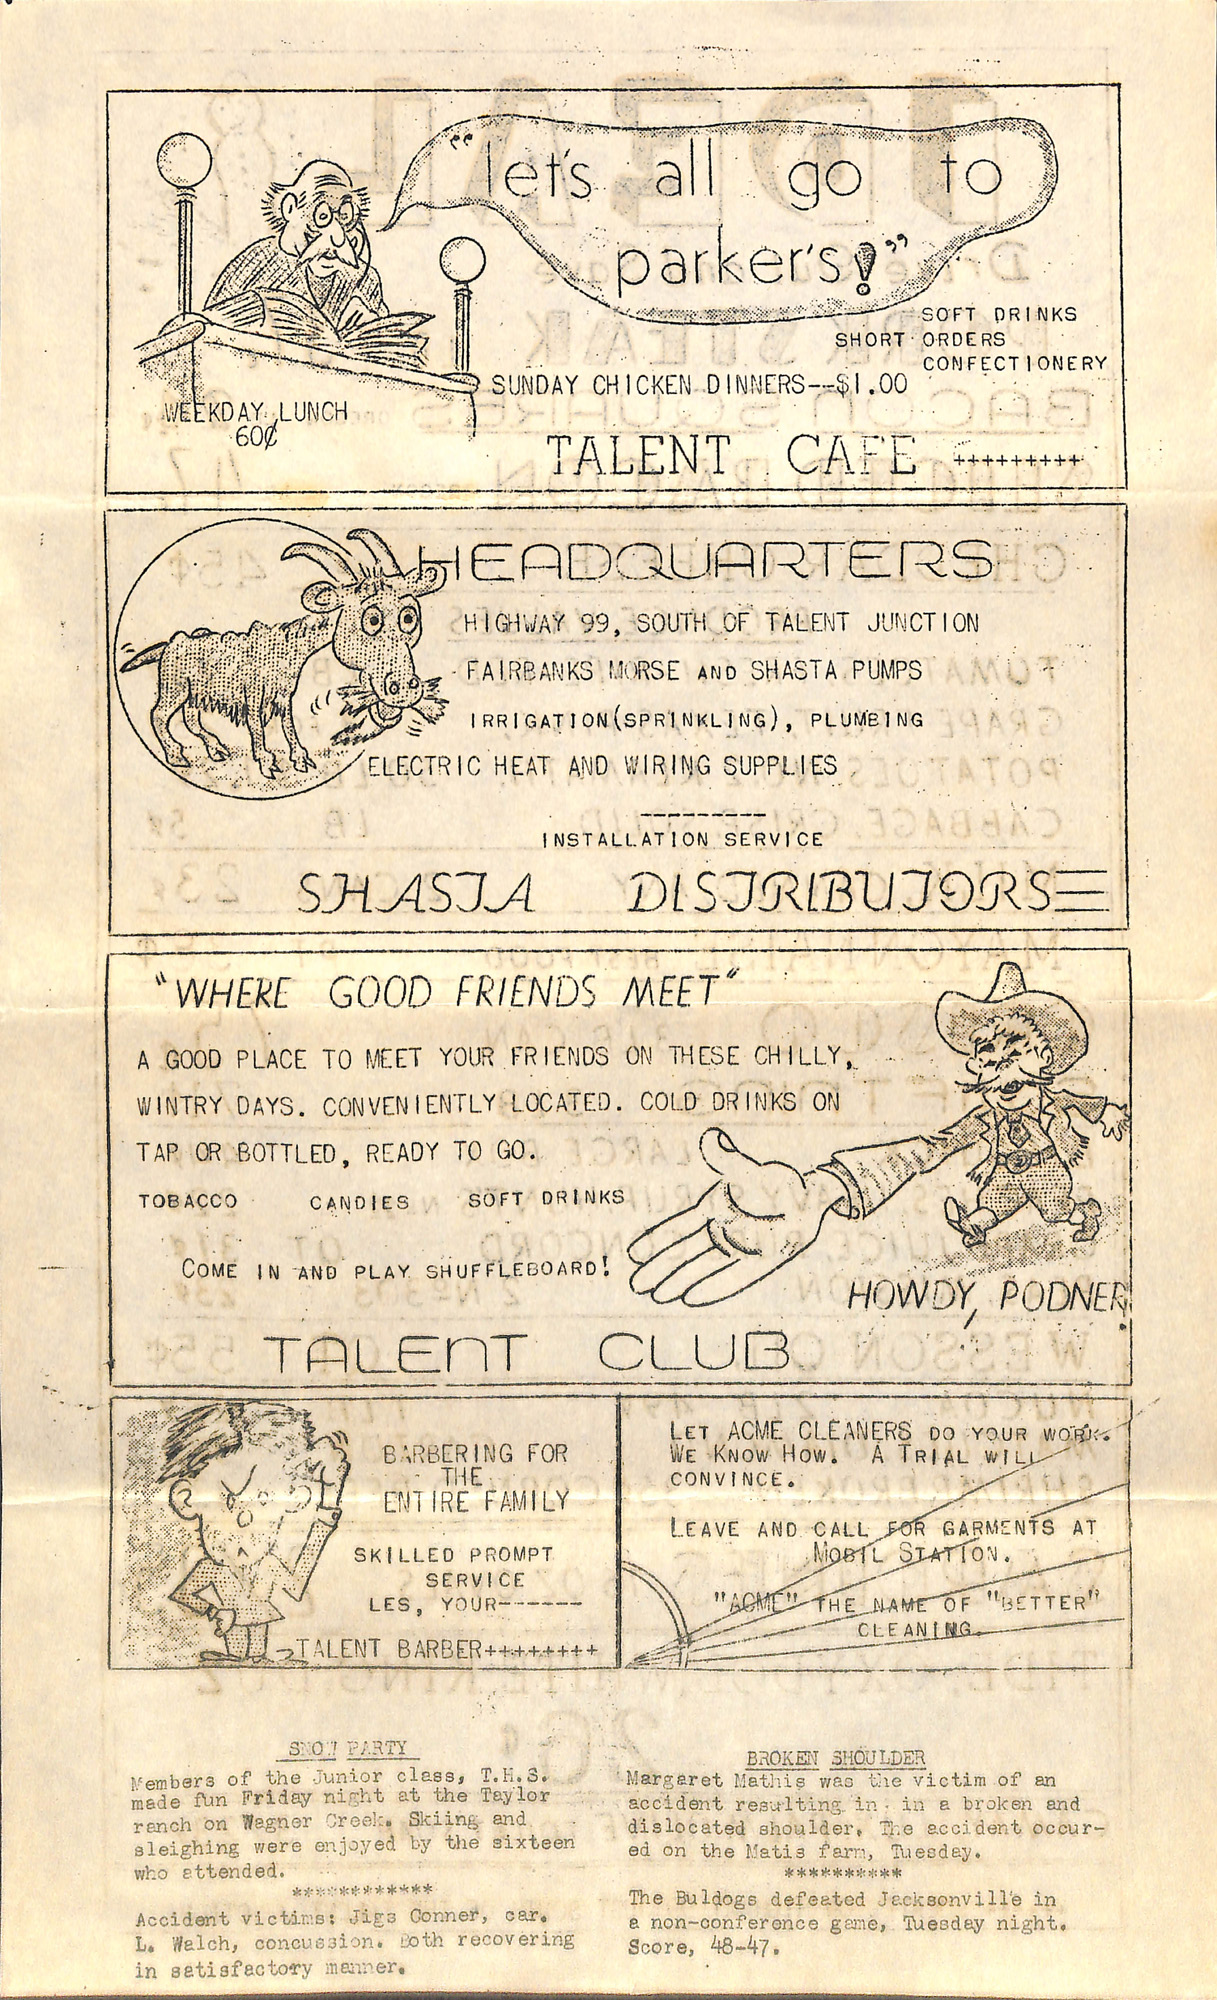 "let's all go to
parker's!"
SOFT DRINKS
SHORT ORDERS
CONFECTIONERY
SUNDAY CHICKEN DINNERS--$1.00
WEEKDAY LUNCH
60¢
TALENT CAFE +++++++++
HEADQUARTERS
HIGHWAY 99, SOUTH OF TALENT JUNCTION
FAIRBANKS MORSE AND SHASTA PUMPS
IRRIGATION(SPRINKLING), PLUMBING
ELECTRIC HEAT AND WIRING SUPPLIES
---------
INSTALLATION SERVICE
SHASTA DISTRIBUTORS
"WHERE GOOD FRIENDS MEET"
A GOOD PLACE TO MEET YOUR FRIENDS ON THESE CHILLY,
WINTRY DAYS. CONVENIENTLY LOCATED. COLD DRINKS ON
TAP OR BOTTLED, READY TO GO.
TOBACCO CANDIES SOFT DRINKS
COME IN AND PLAY SHUFFLEBOARD!
HOWDY, PODNER!
TALENT CLUB
BARBERING FOR
THE
ENTIRE FAMILY
SKILLED PROMPT
SERVICE
LES, YOUR------
TALENT BARBER++++++++
LET ACME CLEANERS DO YOUR WORK.
WE KNOW HOW. A TRIAL WILL
CONVINCE.
LEAVE AND CALL FOR GARMENTS AT
MOBIL STATION.
"ACME" THE NAME OF "BETTER"
CLEANING.
SNOW PARTY
Members of the Junior class, T.H.S.
made fun Friday night at the Taylor
ranch on Wagner Creek. Skiing and
sleighing were enjoyed by the sixteen
who attended.
************
Accident victims: Jigs Conner, car.
L. Walch, concussion. Both recovering
in satisfactory manner.
BROKEN SHOULDER
Margaret Mathis was the victim of an
accident resulting in in a broken and
dislocated shoulder. The accident occur-
ed on the Matis farm, Tuesday.
**********
The Buldogs defeated Jacksonville in
a non-conference game, Tuesday night.
Score, 48-47.